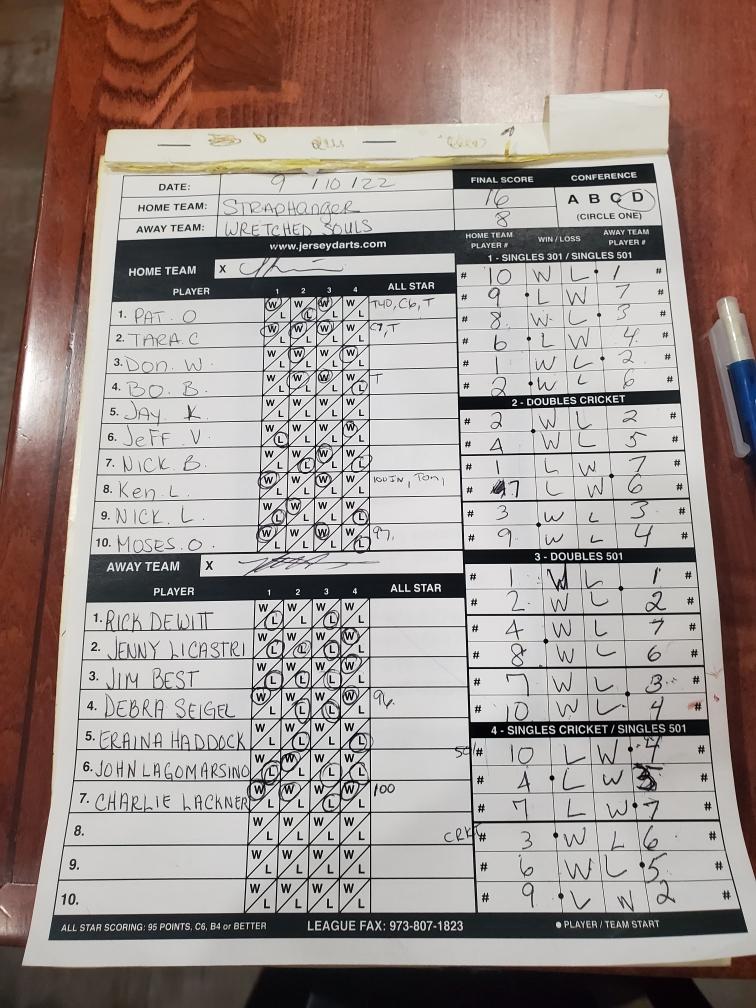 DATE: 9 /10/22
HOME TEAM: STRAPHANGER
AWAY TEAM: WRETCHED SOULS
FINAL SCORE
16
8
CONFERENCE
A B C D
(CIRCLE ONE)
www.jerseydarts.com
HOME TEAM X
PLAYER 1 2 3 4 ALL STAR
1. PAT. O W L W L W L W L T40, C6, T
2. TARA. C W L W L W L W L C7, T
3. Don. W. W L W L W L W L
4. BO. B. W L W L W L W L T
5. JAY. K W L W L W L W L
6. JeFF. V. W L W L W L W L
7. NICK. B. W L W L W L W L
8. Ken. L. W L W L W L W L 100IN, Ton,
9. NICK. L. W L W L W L W L
10. MOSES. O. W L W L W L W L 97,
AWAY TEAM X
PLAYER 1 2 3 4 ALL STAR
1. RICK DEWITT W L W L W L W L
2. JENNY LICASTRI W L W L W L W L
3. JIM BEST W L W L W L W L
4. DEBRA SEIGEL W L W L W L W L 96.
5. ERAINA HADDOCK W L W L W L W L
6. JOHN LAGOMARSINO W L W L W L W L
7. CHARLIE LACKNER W L W L W L W L 100
8. W L W L W L W L
9. W L W L W L W L
10. W L W L W L W L
HOME TEAM PLAYER # WIN / LOSS AWAY TEAM PLAYER #
1 - SINGLES 301 / SINGLES 501
# 10 W L • 1 #
# 9 • L W 7 #
# 8 W L • 3 #
# 6 • L W 4 #
# 1 W L • 2 #
# 2 • W L 6 #
2 - DOUBLES CRICKET
# 2 W L 2 #
# 4 W L 5 #
# 1 L W 7 #
# 7 L W 6 #
# 3 W L 3 #
# 9 W L 4 #
3 - DOUBLES 501
# 1 W L 1 #
# 2 W L 2 #
# 4 W L 7 #
# 8 W L 6 #
# 7 W L 3 #
# 10 W L 4 #
4 - SINGLES CRICKET / SINGLES 501
501 # 10 L W • 4 #
# 4 • L W #
# 7 L W • 7 #
CRKT # 3 • W L 6 #
# 6 W L • 5 #
# 9 • L W 2 #
ALL STAR SCORING: 95 POINTS, C6, B4 or BETTER LEAGUE FAX: 973-807-1823 • PLAYER / TEAM START